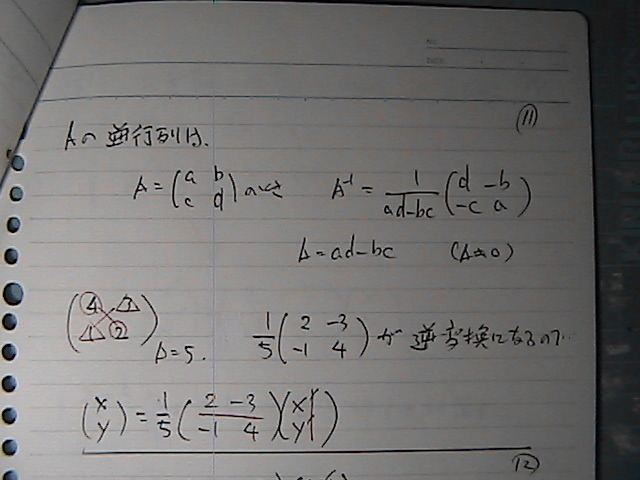 ⑪
Aの逆行列は、
A = (a b c d) のとき A⁻¹ = 1/(ad-bc) (d -b -c a)
Δ = ad-bc (Δ≠0)
(4 3 1 2) Δ=5. 1/5 (2 -3 -1 4) が 逆変換になるので…
(x y) = 1/5 (2 -3 -1 4)(x' y')
⑫